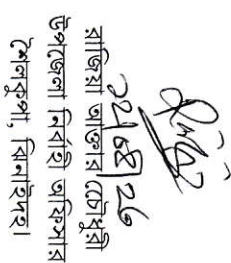 ২১/৪/২৬
রাজিয়া আক্তার চৌধুরী
উপজেলা নির্বাহী অফিসার
শৈলকুপা, ঝিনাইদহ।